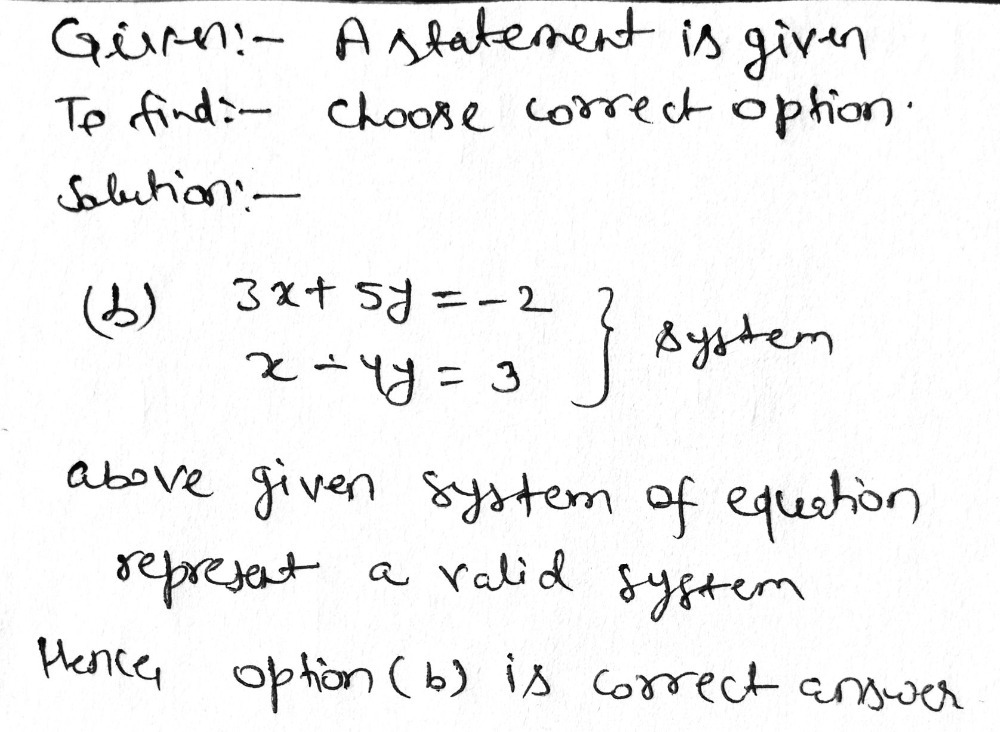 Given:- A statement is given
To find:- choose correct option.
Solution:-
(b) 3x + 5y = -2
x - 4y = 3 } system
above given system of equation
represent a valid system
Hence, option (b) is correct answer